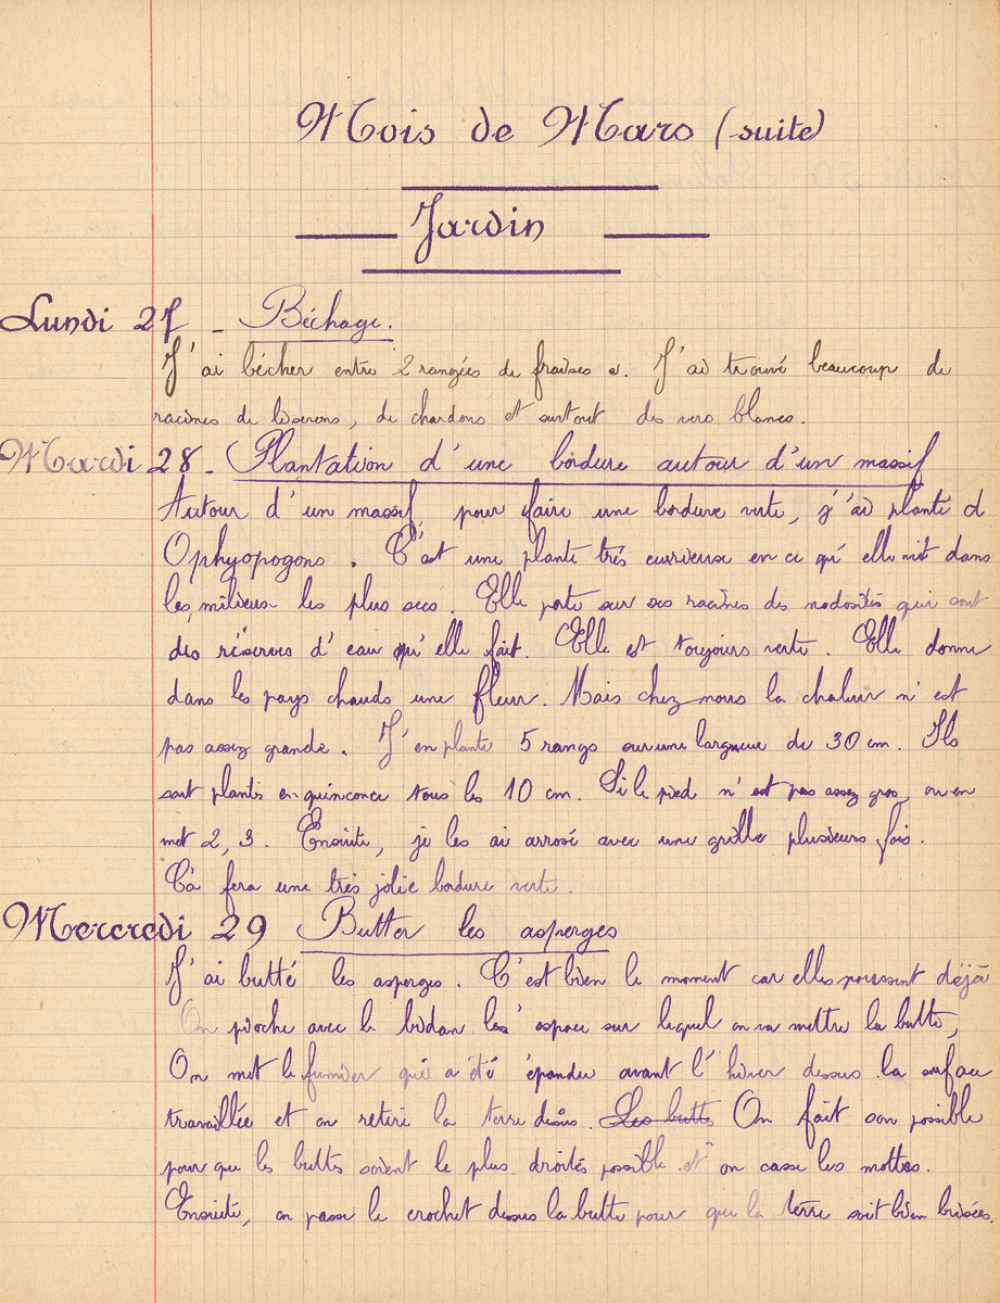 Mois de Mars (suite)
Jardin
Lundi 27 - Béchage.
J'ai bécher entre 2 rangées de fraises. J'ai trouvé beaucoup de
racines de liserons, de chardons et surtout des vers blancs.
Mardi 28 - Plantation d'une bordure autour d'un massif
Autour d'un massif, pour faire une bordure verte, j'ai planté d
Ophyopogons. C'est une plante très curieuse en ce qu'elle vit dans
les milieux les plus secs. Elle porte sur ses racines des nodosités qui sont
des réserves d'eau qu'elle fait. Elle est toujours verte. Elle donne
dans les pays chauds une fleur. Mais chez nous la chaleur n'est
pas assez grande. J'en plante 5 rangs sur une largueur de 30 cm. Ils
sont plantés en quinconce tous les 10 cm. Si le pied n'est pas assez gros, on en
met 2, 3. Ensuite, je les ai arrosé avec une grille plusieurs fois.
Cà fera une très jolie bordure verte.
Mercredi 29 Butter les asperges
J'ai butté les asperges. C'est bien le moment car elles poussent déjà
On pioche avec le bidan les espace sur lequel on va mettre la butte,
On met le fumier qui a été épandu avant l'hiver dessus la surface
travaillée et on retire la terre dessus. Les butts On fait son possible
pour que les buttes soient le plus droites possible et on casse les mottes.
Ensuite, on passe le crochet dessus la butte pour que la terre soit bien brisées.